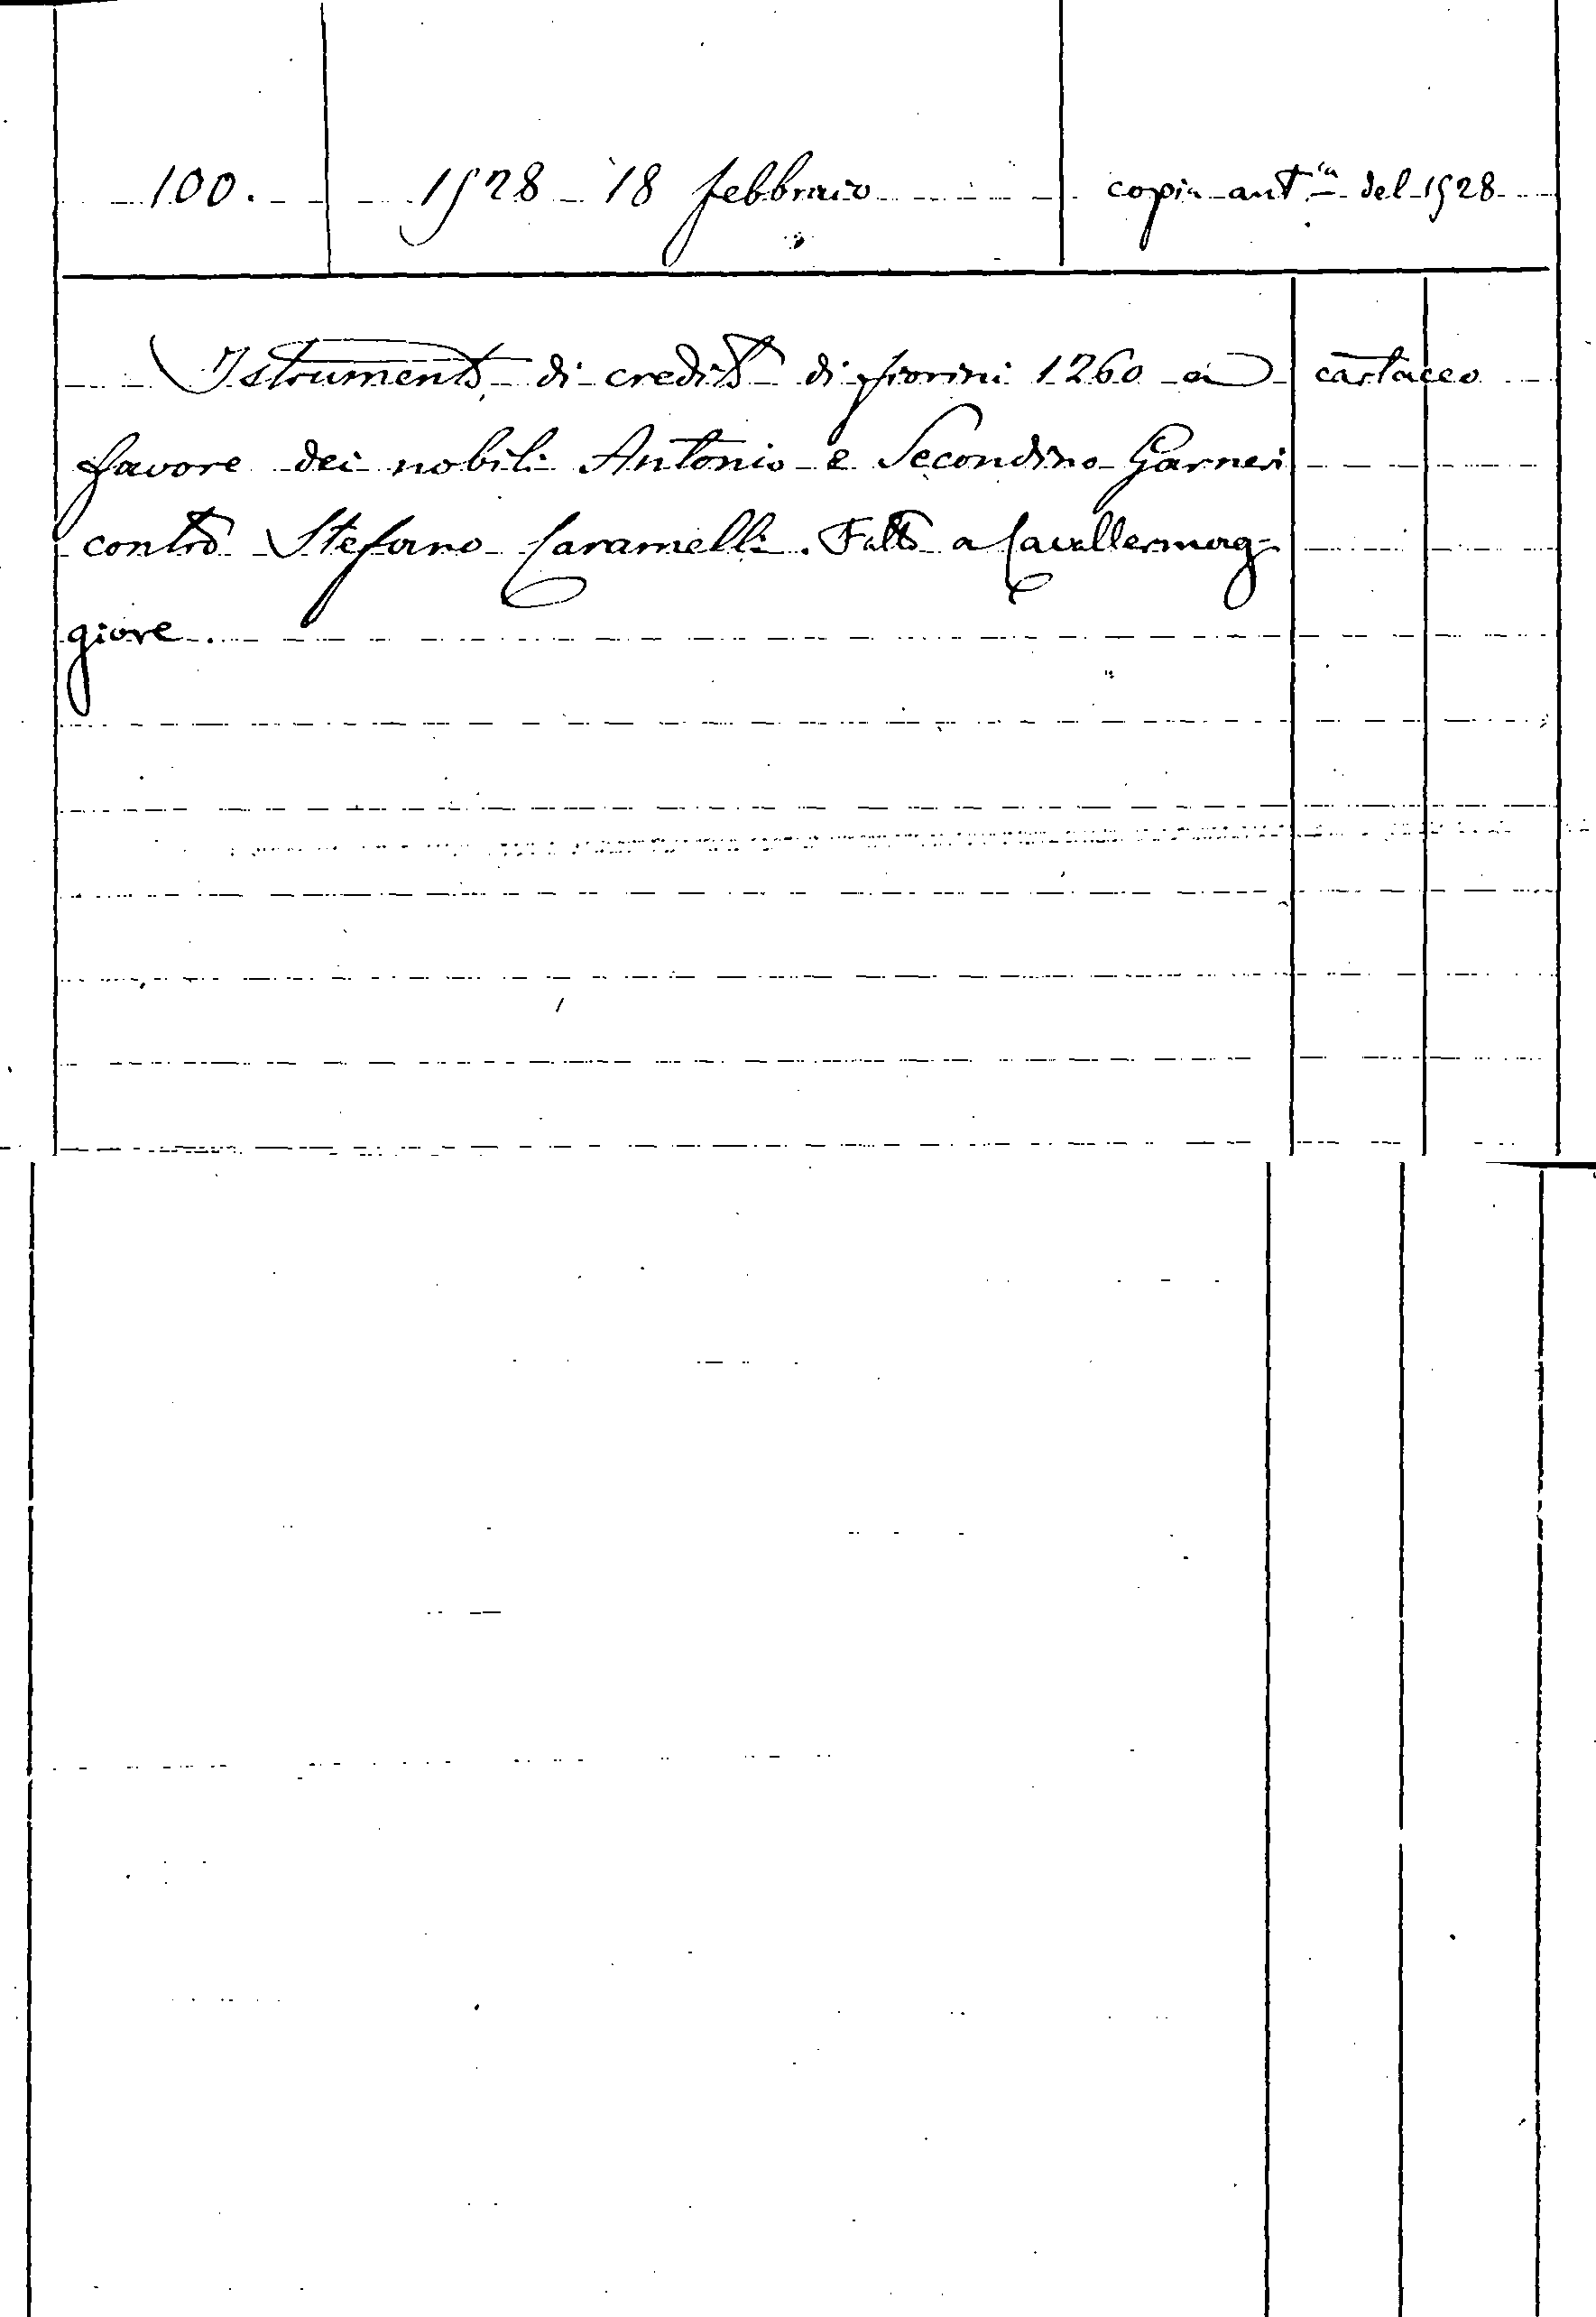 100. 1528 18 febbraio copia ant.ca del 1528
Istrumento di credito di fiorini 1260 a cartaceo
favore dei nobili Antonio e Secondino Garneri
contro Stefano Caramelli. Fatto a Cavallermag-
giore.